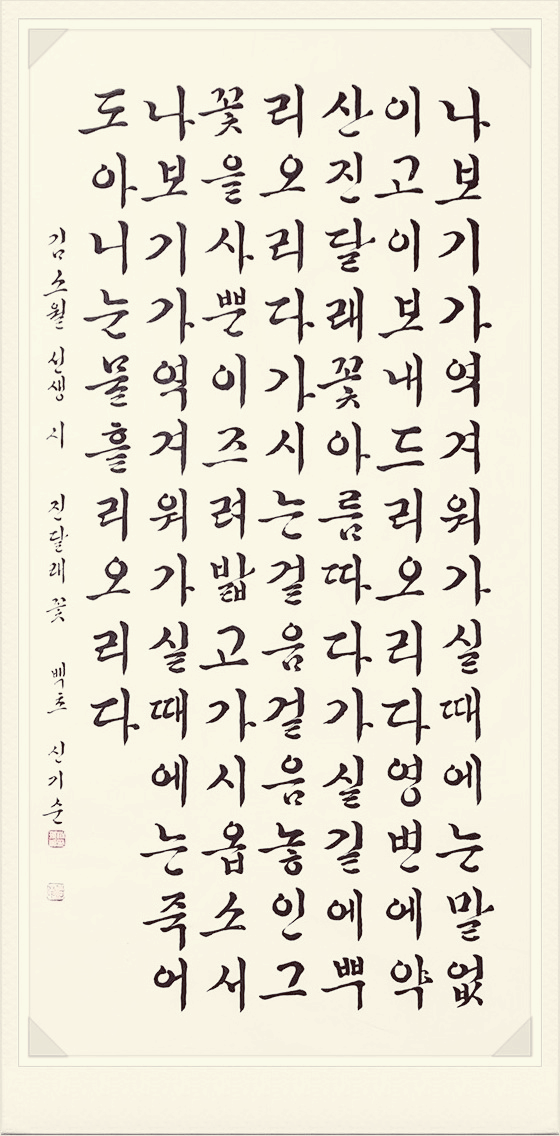 나보기가역겨워가실때에는말없
이고이보내드리오리다영변에약
산진달래꽃아름따다가실길에뿌
리오리다가시는걸음걸음놓인그
꽃을사뿐이즈려밟고가시옵소서
나보기가역겨워가실때에는죽어
도아니눈물흘리오리다
김소월 선생 시 진달래꽃 백초 신기순